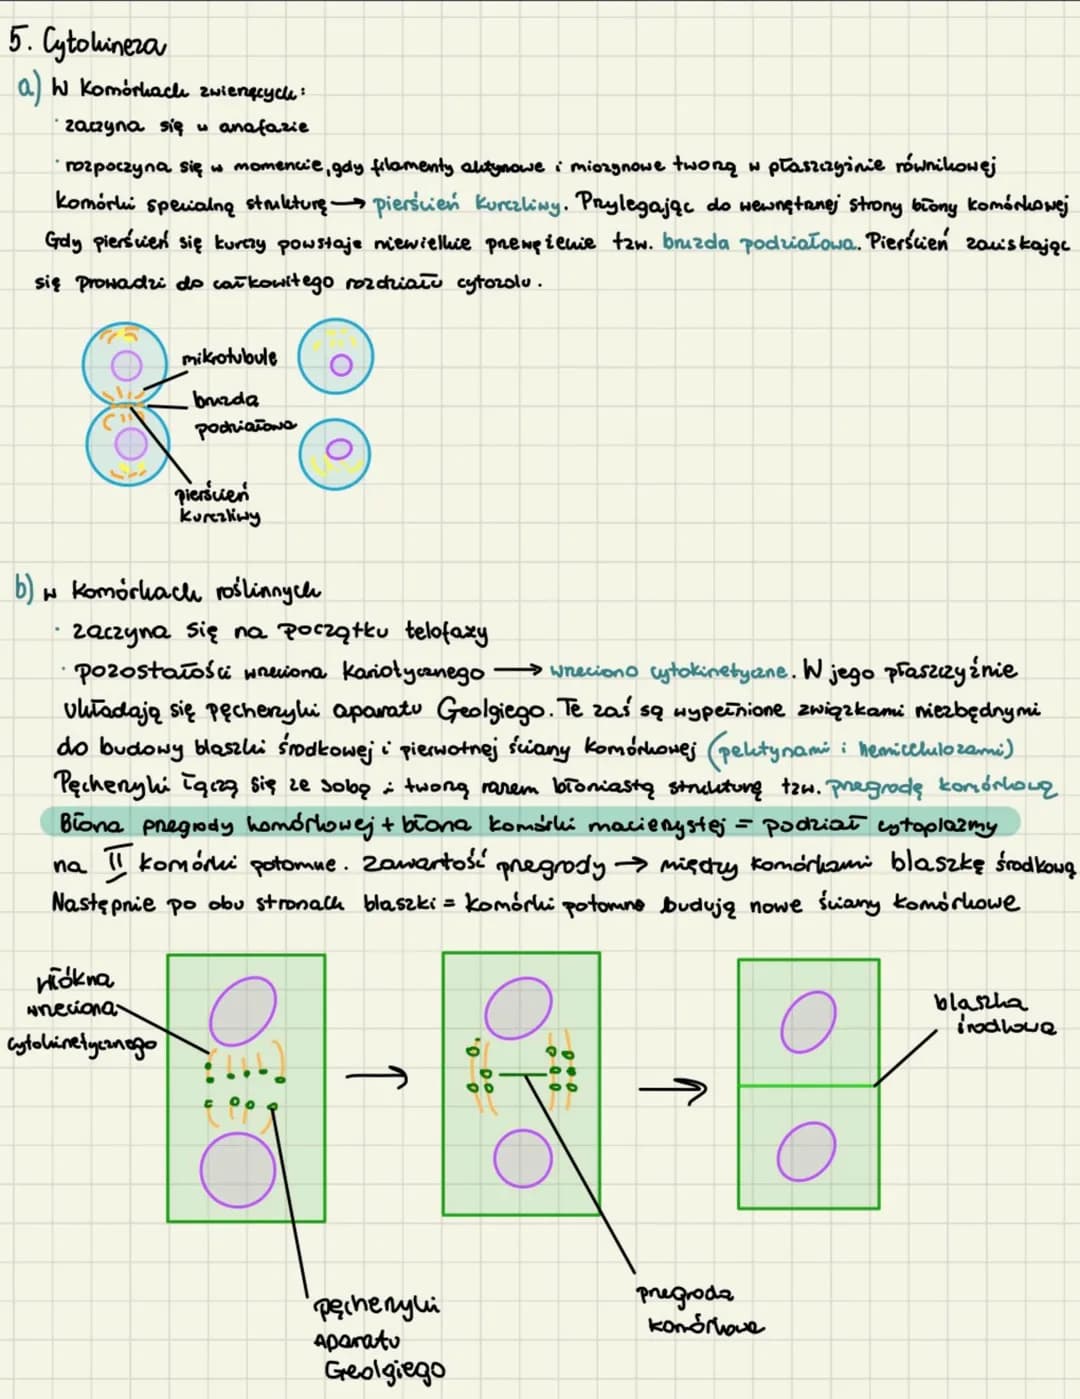 5. Cytokineza
a) W komórkach zwierzęcych:
· zaczyna się w anafazie
· rozpoczyna się w momencie, gdy filamenty aktynowe i miozynowe tworzą w płaszczyźnie równikowej
komórki specjalną strukturę → pierścień kurczliwy. Przylegając do wewnętrznej strony błony komórkowej
Gdy pierścień się kurczy powstaje niewielkie przewężenie tzw. bruzda podziałowa. Pierścień zaciskając
się prowadzi do całkowitego rozdziału cytozolu.
mikrotubule
bruzda
podziałowa
pierścień
kurczliwy
b) w komórkach roślinnych
· zaczyna się na początku telofazy
· pozostałości wrzeciona kariotycznego → wrzeciono cytokinetyczne. W jego płaszczyźnie
układają się pęcherzyki aparatu Geolgiego. Te zaś są wypełnione związkami niezbędnymi
do budowy blaszki środkowej i pierwotnej ściany komórkowej (pektynami i hemicelulozami)
Pęcherzyki łączą się ze sobą i tworzą razem błoniastą strukturę tzw. przegrodę komórkową
Błona przegrody komórkowej + błona komórki macierzystej = podział cytoplazmy
na II komórki potomne. Zawartość przegrody → między komórkami blaszkę środkową
Następnie po obu stronach blaszki = komórki potomne budują nowe ściany komórkowe
włókna
wrzeciona
cytokinetycznego
blaszka
środkowa
pęcherzyki
Aparatu
Geolgiego
przegroda
komórkowa